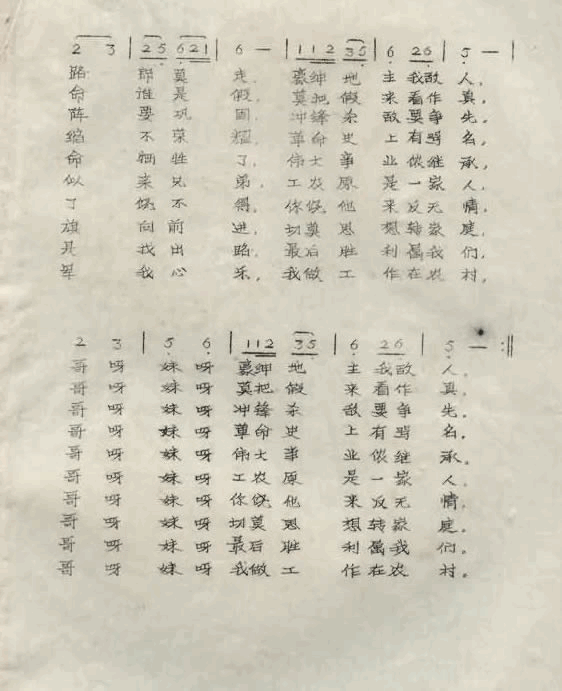 2 3 | 2 5 6 21 | 6 — | 112 35 | 6 26 | 5 — |
路 莫 走, 豪绅 地 主 我敌 人,
命 谁 是 假, 莫把 假 来 看作 真,
阵 要 巩 固, 冲锋 杀 敌 要争 先,
不 荣 耀, 革命 史 上 有 名,
命 牺牲 了, 伟大 事 业 依继 承,
似 亲 兄 弟, 工农 原 是 一家 人,
了 饶 不 得, 你饶 他 来 反无 情,
旗 向 前 进, 切莫 思 想 转家 庭,
是 找 出 路, 最后 胜 利 属我 们,
我 心 乐, 我做 工 作在农 村,
2 3 | 5 6 | 112 35 | 6 26 | 5 — :||
哥 呀 妹 呀 豪绅 地 主 我敌 人。
哥 呀 妹 呀 莫把 假 来 看作 真。
哥 呀 妹 呀 冲锋 杀 敌 要争 先。
哥 呀 妹 呀 革命 史 上 有 名。
哥 呀 妹 呀 伟大 事 业 依继 承。
哥 呀 妹 呀 工农 原 是 一家 人。
哥 呀 妹 呀 你饶 他 来 反无 情。
哥 呀 妹 呀 切莫 思 想 转家 庭。
哥 呀 妹 呀 最后 胜 利 属我 们。
哥 呀 妹 呀 我做 工 作在农 村。